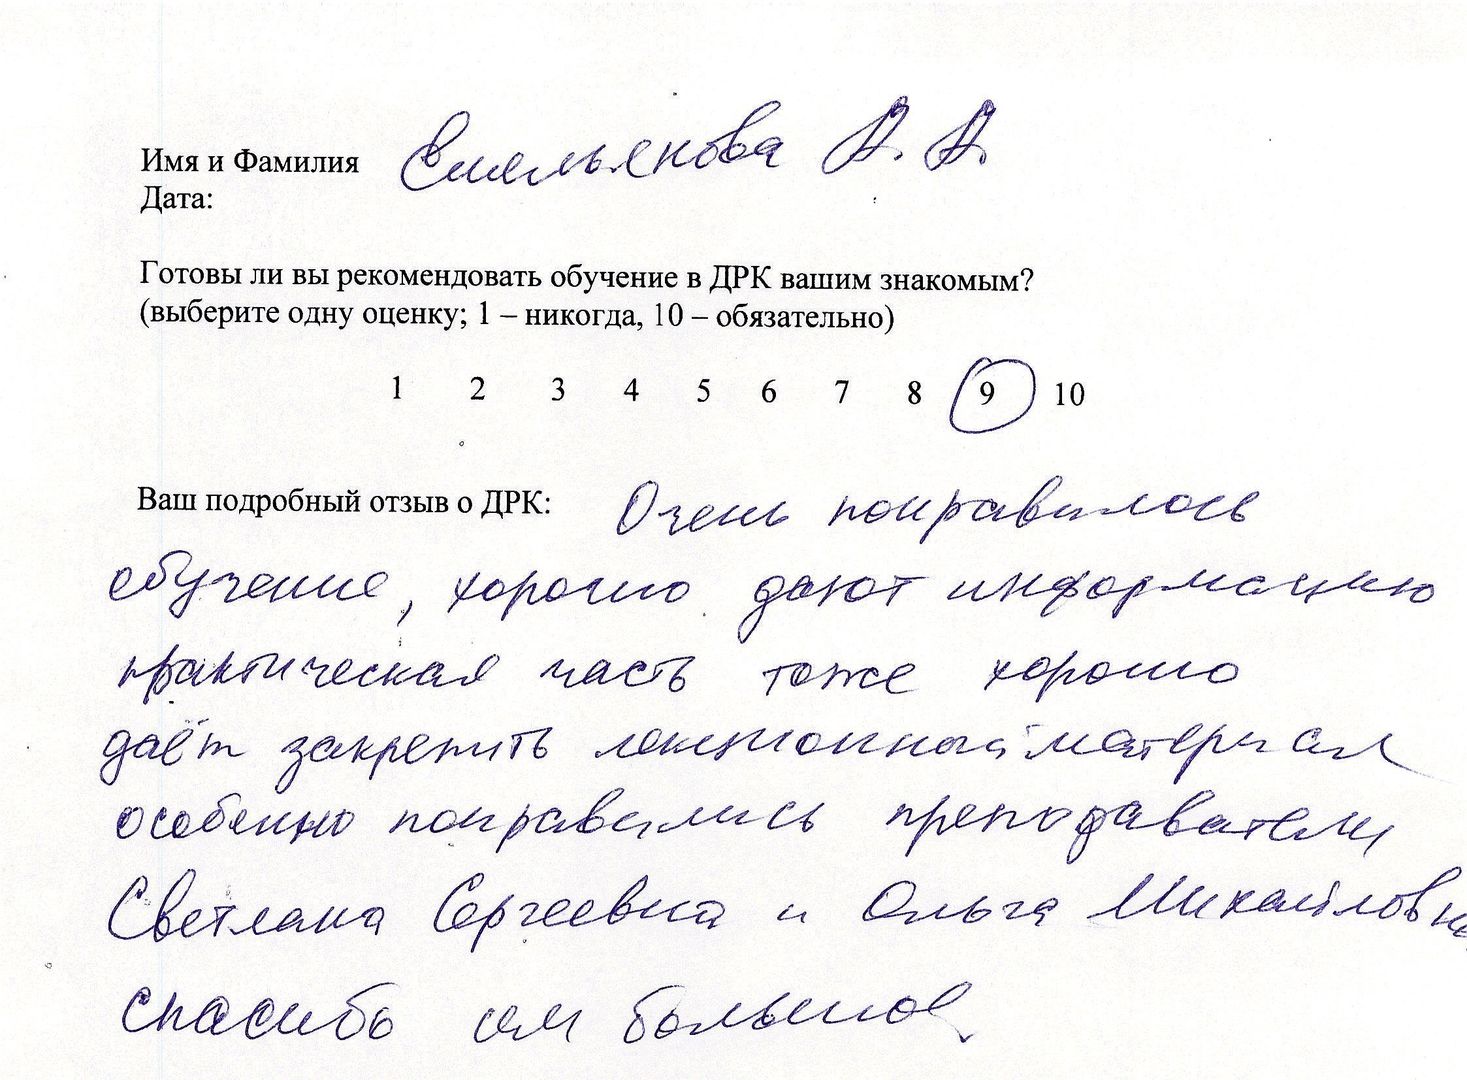 Имя и Фамилия Емельянова А. А.
Дата:
Готовы ли вы рекомендовать обучение в ДРК вашим знакомым?
(выберите одну оценку; 1 – никогда, 10 – обязательно)
1 2 3 4 5 6 7 8 9 10
Ваш подробный отзыв о ДРК: Очень понравилось
обучение, хорошо дают информацию
практическая часть тоже хорошо
даёт закрепить лекционный материал
особенно понравились преподаватели
Светлана Сергеевна и Ольга Михайловна
спасибо им большое.